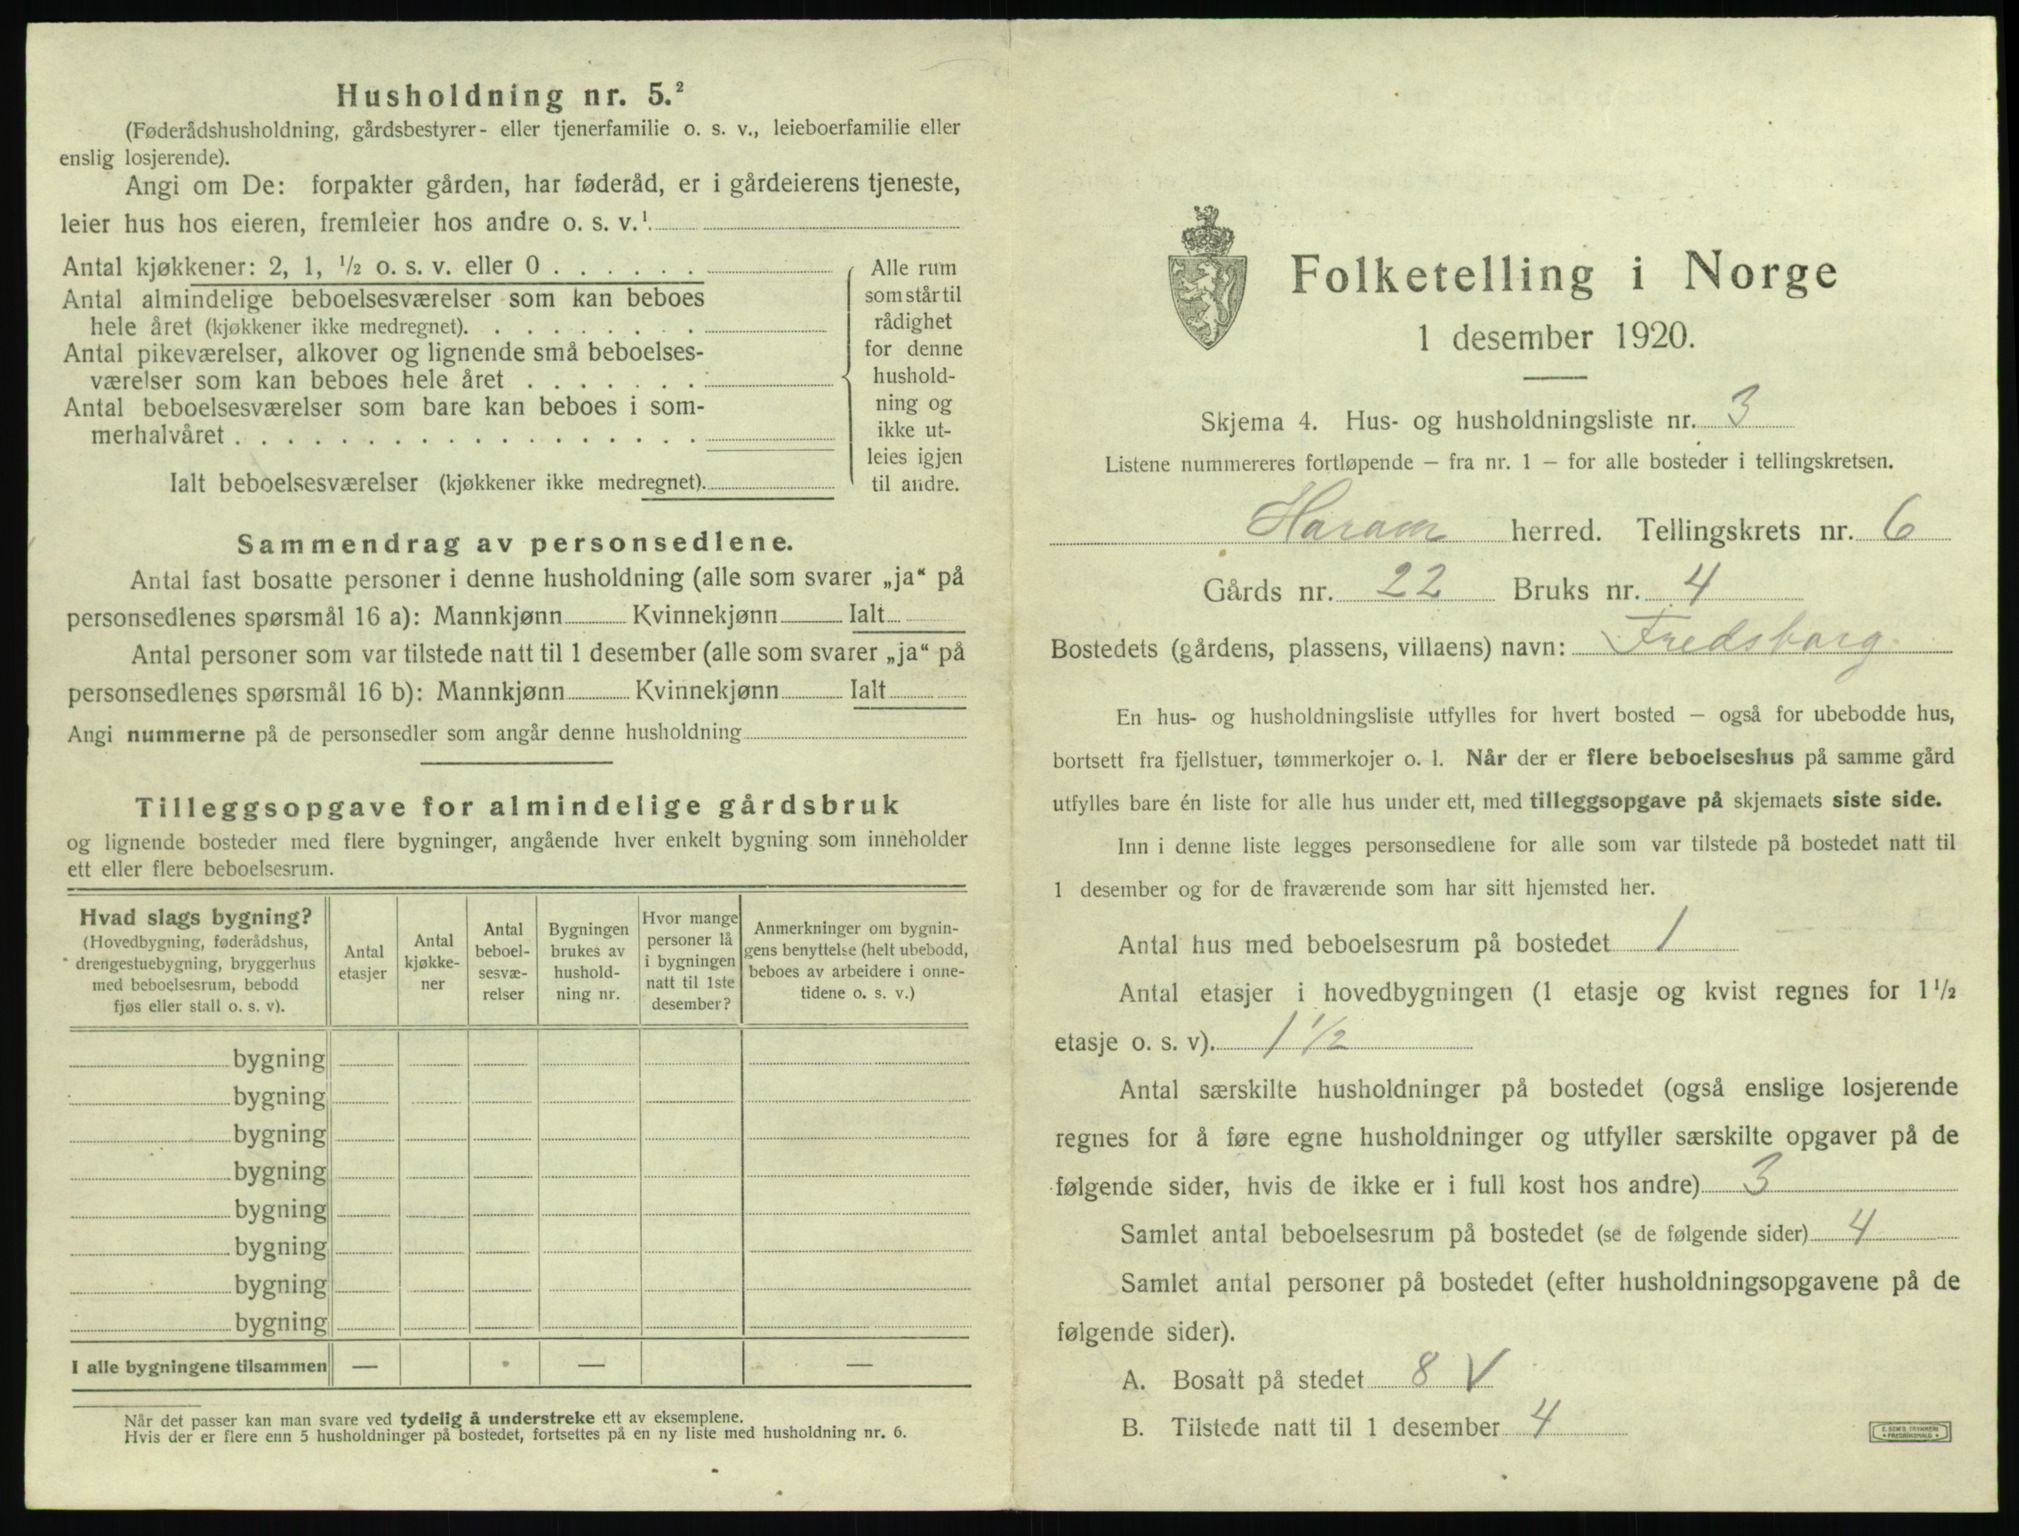 Husholdning nr. 5.²
(Føderådshusholdning, gårdsbestyrer- eller tjenerfamilie o. s. v., leieboerfamilie eller
enslig losjerende).
Angi om De: forpakter gården, har føderåd, er i gårdeierens tjeneste,
leier hus hos eieren, fremleier hos andre o. s. v.¹
Antal kjøkkener: 2, 1, ½ o. s. v. eller 0 . . . . . .
Antal almindelige beboelsesværelser som kan beboes
hele året (kjøkkener ikke medregnet). . . . . . . . .
Antal pikeværelser, alkover og lignende små beboelses-
værelser som kan beboes hele året . . . . . . .
Antal beboelsesværelser som bare kan beboes i som-
merhalvåret . . . . . . . . . . . . . . . . . .
Ialt beboelsesværelser (kjøkkener ikke medregnet).
Alle rum
som står til
rådighet
for denne
hushold-
ning og
ikke ut-
leies igjen
til andre.
Sammendrag av personsedlene.
Antal fast bosatte personer i denne husholdning (alle som svarer „ja“ på
personsedlenes spørsmål 16 a): Mannkjønn Kvinnekjønn Ialt
Antal personer som var tilstede natt til 1 desember (alle som svarer „ja“ på
personsedlenes spørsmål 16 b): Mannkjønn Kvinnekjønn Ialt
Angi nummerne på de personsedler som angår denne husholdning
Tilleggsopgave for almindelige gårdsbruk
og lignende bosteder med flere bygninger, angående hver enkelt bygning som inneholder
ett eller flere beboelsesrum.
Hvad slags bygning?
(Hovedbygning, føderådshus,
drengestuebygning, bryggerhus
med beboelsesrum, bebodd
fjøs eller stall o. s. v).
Antal
etasjer
Antal
kjøkke-
ner
Antal
beboel-
sesvæ-
relser
Bygningen
brukes av
hushold-
ning nr.
Hvor mange
personer lå
i bygningen
natt til 1ste
desember?
Anmerkninger om bygnin-
gens benyttelse (helt ubebodd,
beboes av arbeidere i onne-
tidene o. s. v.)
bygning
bygning
bygning
bygning
bygning
bygning
bygning
bygning
I alle bygningene tilsammen — — —
Når det passer kan man svare ved tydelig å understreke ett av eksemplene.
Hvis der er flere enn 5 husholdninger på bostedet, fortsettes på en ny liste med husholdning nr. 6.
Folketelling i Norge
1 desember 1920.
Skjema 4. Hus- og husholdningsliste nr. 3
Listene nummereres fortløpende – fra nr. 1 – for alle bosteder i tellingskretsen.
Haram herred. Tellingskrets nr. 6
Gårds nr. 22 Bruks nr. 4
Bostedets (gårdens, plassens, villaens) navn: Fredsborg
En hus- og husholdningsliste utfylles for hvert bosted – også for ubebodde hus,
bortsett fra fjellstuer, tømmerkojer o. l. Når der er flere beboelseshus på samme gård
utfylles bare én liste for alle hus under ett, med tilleggsopgave på skjemaets siste side.
Inn i denne liste legges personsedlene for alle som var tilstede på bostedet natt til
1 desember og for de fraværende som har sitt hjemsted her.
Antal hus med beboelsesrum på bostedet 1
Antal etasjer i hovedbygningen (1 etasje og kvist regnes for 1½
etasje o. s. v). 1½
Antal særskilte husholdninger på bostedet (også enslige losjerende
regnes for å føre egne husholdninger og utfyller særskilte opgaver på de
følgende sider, hvis de ikke er i full kost hos andre) 3
Samlet antal beboelsesrum på bostedet (se de følgende sider) 4
Samlet antal personer på bostedet (efter husholdningsopgavene på de
følgende sider).
A. Bosatt på stedet 8 V
B. Tilstede natt til 1 desember 4